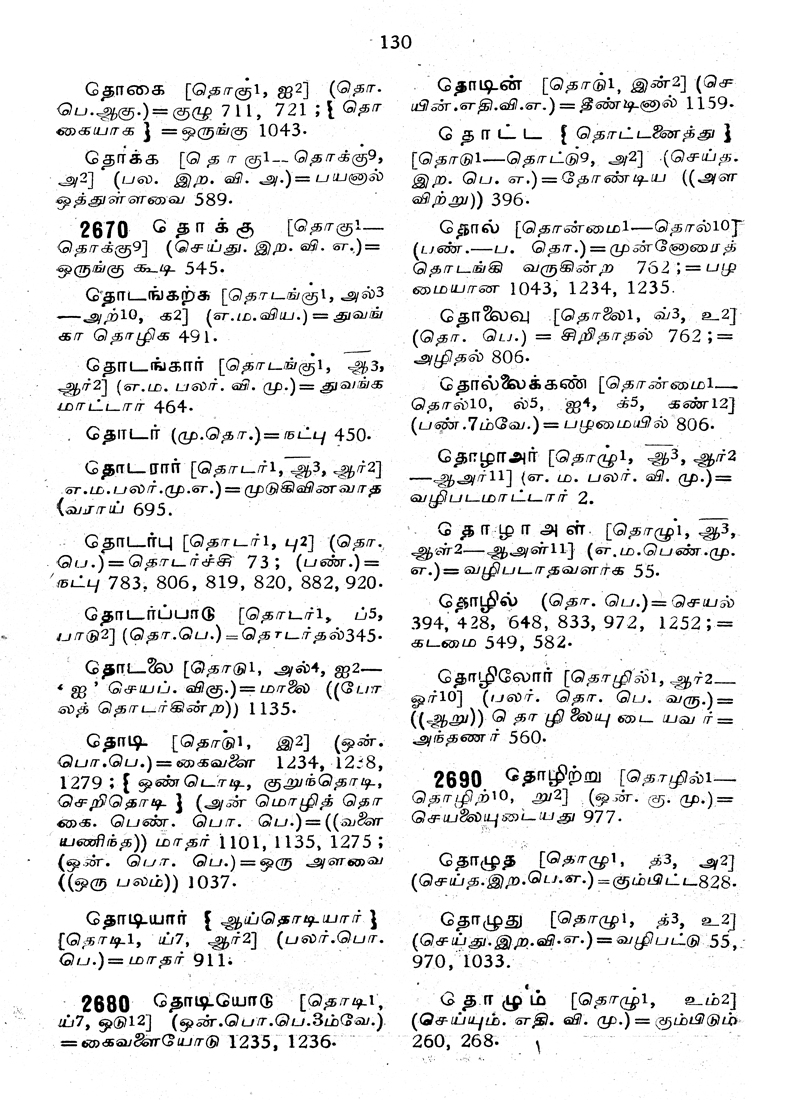 130
தொகை [தொகு1, ஐ2] (தொ.
பெ.ஆகு.)=குழு 711, 721 ; { தொ
கையாக } =ஒருங்கு 1043.
தொக்க [தொகு1—தொக்கு9,
அ2] (பல. இற. வி. அ.)=பயனால்
ஒத்துள்ளவை 589.
2670 தொக்கு [தொகு1—
தொக்கு9] (செய்து. இற. வி. எ.)=
ஒருங்கு கூடி 545.
தொடங்கற்க [தொடங்கு1, அல்3
—அற்10, க2] (எ.ம.விய.)=துவங்
கா தொழிக 491.
தொடங்கார் [தொடங்கு1, ஆ3,
ஆர்2] (எ.ம. பலர். வி. மு.)=துவங்க
மாட்டார் 464.
தொடர் (மு.தொ.)=நட்பு 450.
தொடரார் [தொடர்1, ஆ3, ஆர்2]
எ.ம.பலர்.மு.எ.)=முடுகிவினவாத
(வராய் 695.
தொடர்பு [தொடர்1, பு2] (தொ.
பெ.)=தொடர்ச்சி 73; (பண்.)=
நட்பு 783, 806, 819, 820, 882, 920.
தொடர்ப்பாடு [தொடர்1, ப்5,
பாடு2] (தொ.பெ.)=தொடர்தல்345.
தொடலை [தொடு1, அல்4, ஐ2—
‘ ஐ ’ செயப். விகு.)=மாலை ((போ
லத் தொடர்கின்ற)) 1135.
தொடி [தொடு1, இ2] (ஒன்.
பொ.பெ.)=கைவளை 1234, 1238,
1279 ; { ஒண்டொடி, குறுந்தொடி,
செறிதொடி } (அன் மொழித் தொ
கை. பெண். பொ. பெ.)=((வளை
யணிந்த)) மாதர் 1101, 1135, 1275 ;
(ஒன். பொ. பெ.)=ஒரு அளவை
((ஒரு பலம்)) 1037.
தொடியார் { ஆய்தொடியார் }
[தொடி1, ய்7, ஆர்2] (பலர்.பொ.
பெ.)=மாதர் 911.
2680 தொடியொடு [தொடி1,
ய்7, ஒடு12] (ஒன்.பொ.பெ.3ம்வே.)
=கைவளையோடு 1235, 1236.
தொடின் [தொடு1, இன்2] (செ
யின்.எதி.வி.எ.)=தீண்டினால் 1159.
தொட்ட { தொட்டனைத்து }
[தொடு1—தொட்டு9, அ2] (செய்த.
இற. பெ. எ.)=தோண்டிய ((அள
விற்று)) 396.
தொல் [தொன்மை1—தொல்10]
(பண்.—ப. தொ.)=முன்னோரைத்
தொடங்கி வருகின்ற 762 ;=பழ
மையான 1043, 1234, 1235.
தொலைவு [தொலை1, வ்3, உ2]
(தொ. பெ.) = சிறிதாதல் 762 ;=
அழிதல் 806.
தொல்லைக்கண் [தொன்மை1—
தொல்10, ல்5, ஐ4, க்5, கண்12]
(பண்.7ம்வே.)=பழமையில் 806.
தொழாஅர் [தொழு1, ஆ3, ஆர்2
—ஆஅர்11] (எ. ம. பலர். வி. மு.)=
வழிபடமாட்டார் 2.
தொழாஅள் [தொழு1, ஆ3,
ஆள்2—ஆஅள்11] (எ.ம.பெண்.மு.
எ.)=வழிபடாதவளாக 55.
தொழில் (தொ. பெ.)=செயல்
394, 428, 648, 833, 972, 1252 ;=
கடமை 549, 582.
தொழிலோர் [தொழில்1, ஆர்2—
ஓர்10] (பலர். தொ. பெ. வரு.)=
((ஆறு)) தொழிலையுடையவர்=
அந்தணர் 560.
2690 தொழிற்று [தொழில்1—
தொழிற்10, று2] (ஒன். கு. மு.)=
செயலையுடையது 977.
தொழுத [தொழு1, த்3, அ2]
(செய்த.இற.பெ.எ.)=கும்பிட்ட828.
தொழுது [தொழு1, த்3, உ2]
(செய்து.இற.வி.எ.)=வழிபட்டு 55,
970, 1033.
தொழும் [தொழு1, உம்2]
(செய்யும். எதி. வி. மு.)=கும்பிடும்
260, 268.